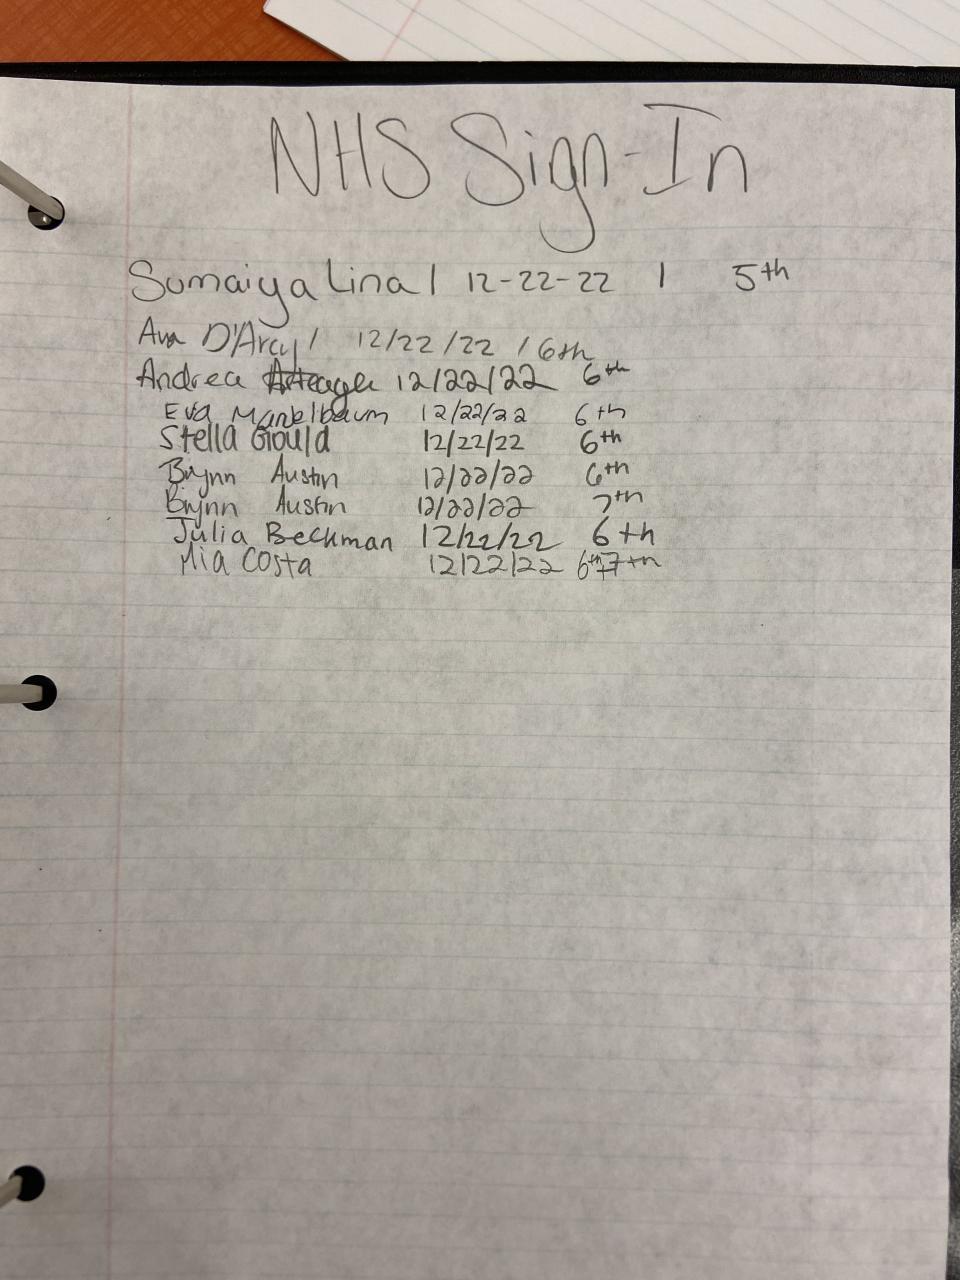 NHS Sign-In
Sumaiya Lina | 12-22-22 | 5th
Ava D'Arcy / 12/22/22 / 6th
Andrea Arteaga 12/22/22 6th
Eva Mandelbaum 12/22/22 6th
Stella Gould 12/22/22 6th
Brynn Austin 12/22/22 6th
Brynn Austin 12/22/22 7th
Julia Beckman 12/22/22 6th
Mia Costa 12/22/22 6th 7th